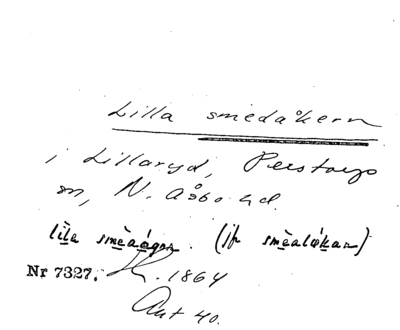 Lilla smedåkern
i Lillaryd, Perstorps
sn, N. Åsbo hd.
lìla smèaágen. (jfr smèalǿkan)
Nr 7327. 1864
Aut 40.